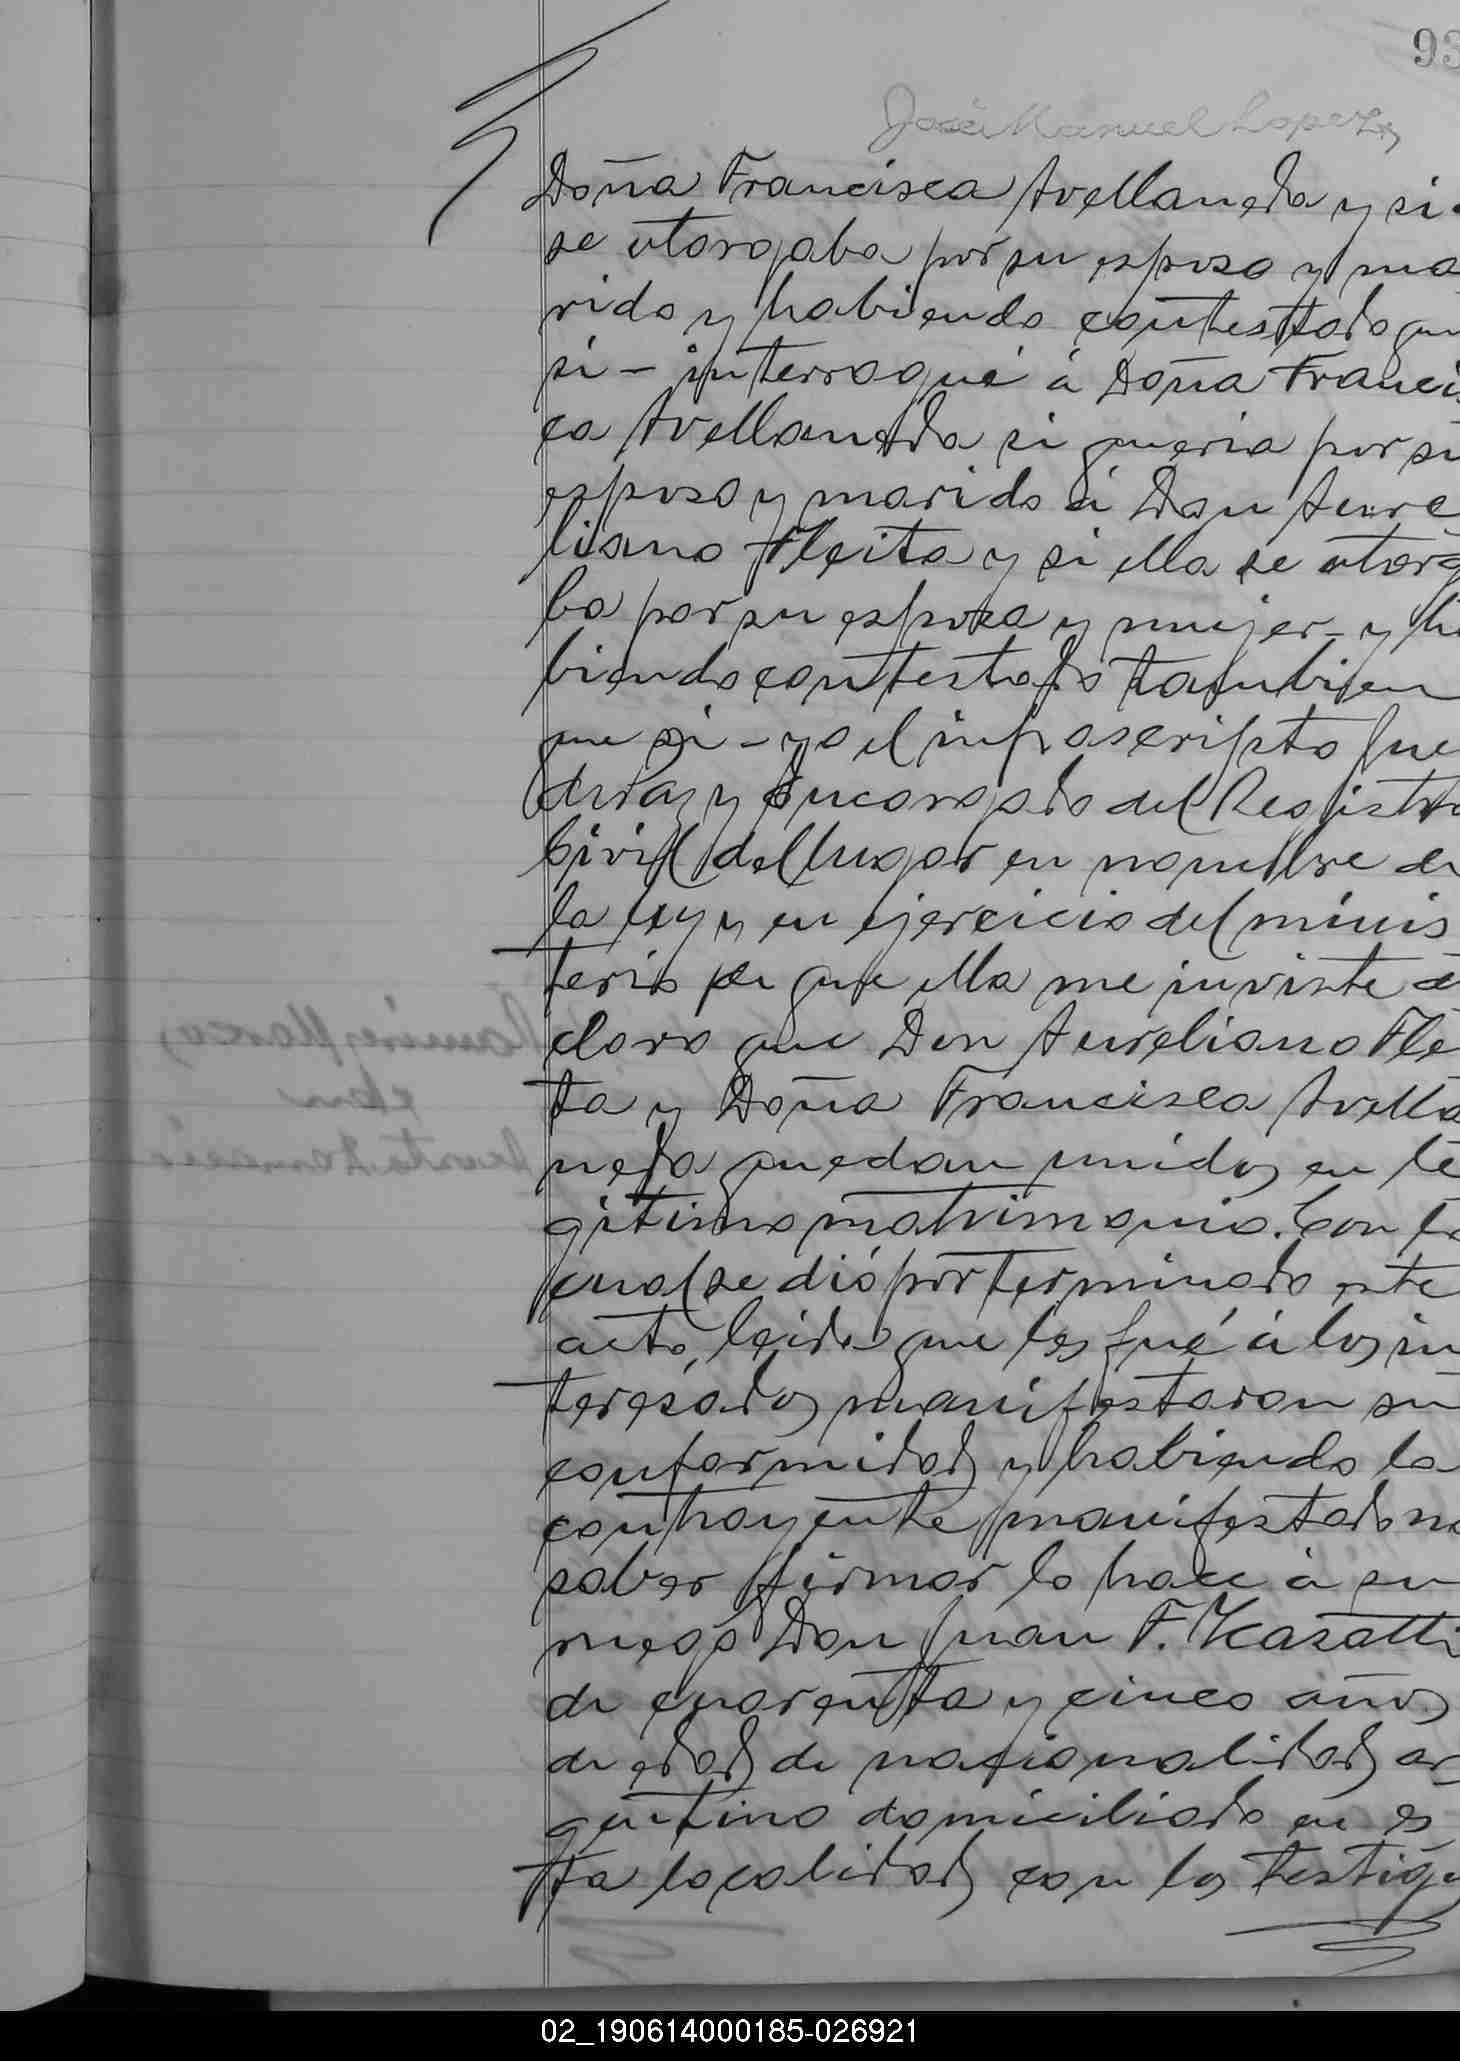 93
José Manuel Lopez
Doña Francisca Avellaneda y si
se otorgaba por su esposo y ma
rido y habiendo contestado que
si - interrogué á Doña Francis
ca Avellaneda si queria por su
esposo y marido á Don Aure
liano Fleita y si ella se otorga
ba por su esposa y mujer - y ha
biendo contestado tambien
que si - yo el infrascripto Jue
de Paz y Encargado del Registro
Civil del lugar en nombre de
la ley y en ejercicio del minis
terio de que ella me inviste de
claro que Don Aureliano Flei
ta y Doña Francisca Avella
neda quedan unidos en le
gitimo matrimonio. Con lo
cual se dió por terminado este
acto, leida que les fué á los in
teresados manifestaron su
conformidad y habiendo la
contrayente manifestado no
saber firmar lo hace á su
ruego Don Juan F. Casatti
de cuarenta y cinco años
de edad de nacionalidad ar
gentino domiciliado en es
ta localidad con los testigos
02_190614000185-026921